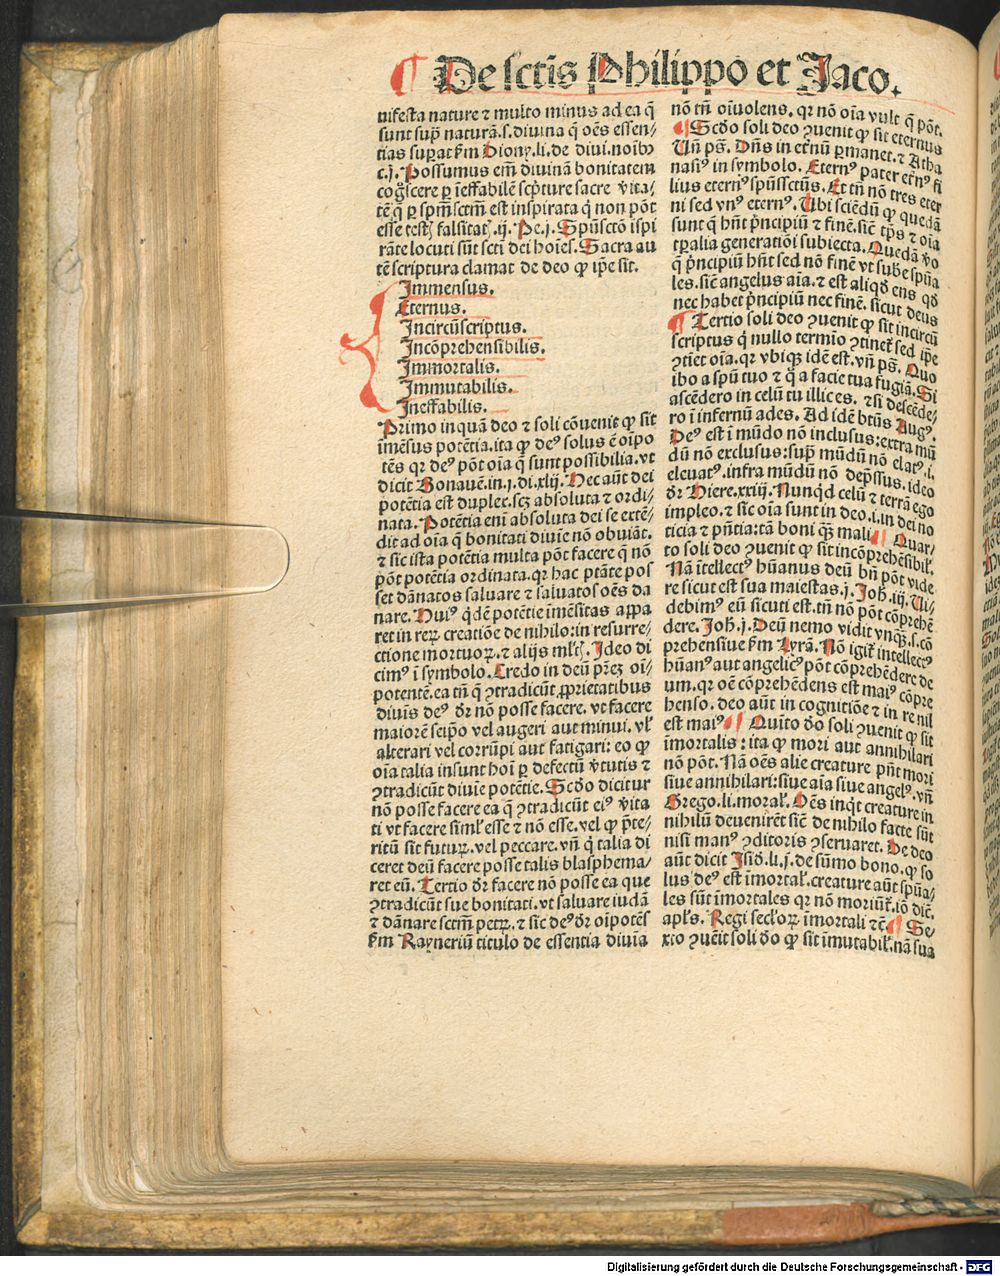 ¶ De sctīs Philippo et Jaco.
nifesta nature ⁊ multo minus ad ea q̄
sunt sup̄ naturā.s.diuina q̄ oēs essen-
tias suꝑat ẜm Diony.li.de diui.noībꝰ
c.j. Possumus em̄ diuinā bonitatem
coḡscere ꝑ īeffabilē scpture sacre v̄ita-
tē q̄ ꝑ spm̄sctm̄ est inspirata q̇ non pōt
esse testꝭ falsitatꝭ.ij. Pe.j. Spūsctō īspi
rāte locuti sūt scti dei hoīes. Sacra au
tē scriptura clamat de deo ꝙ ip̄e sit.
Immensus.
Eternus.
Incircūscriptus.
Incōprehensibilis.
Immortalis.
Immutabilis.
Ineffabilis.
Primo inquā deo ⁊ soli cōuenit ꝙ sit
īmēsus potētia.ita ꝙ deꝰ solus ē oīpo
tēs qr deꝰ pōt oīa q̄ sunt possibilia.vt
dicit Bonauē.in.j.di.xlij. Nec aūt dei
potētia est duplex.scꝫ absoluta ⁊ ordi-
nata. Potētia eni absoluta dei se extē-
dit ad oīa q̄ bonitati diuīe nō obuiāt.
⁊ sic ista potētia multa pōt facere q̄ nō
pōt potētia ordinata.qr hac ptāte pos
set dānatos saluare ⁊ saluatos oēs da
nare. Huiꝰ q̇dē potētie īmēsitas appa
ret in reꝝ creatiōe de nihilo:in resurre-
ctione mortuoꝝ.⁊ alijs ml̄tꝭ. Ideo di
cimꝰ ī symbolo. Credo in deū p̄reꝫ oī-
potentē.ea tn̄ q̄ ꝯtradicūt ꝓprietatibus
diuīs deꝰ dr̄ nō posse facere. vt facere
maiorē seipo vel augeri aut minui. vl̓
alterari vel corrūpi aut fatigari: eo ꝙ
oīa talia insunt hoī ꝑ defectū v̄tutis ⁊
ꝯtradicūt diuīe potētie. Scdo dicitur
nō posse facere ea q̄ ꝯtradicūt eiꝰ v̄ita
ti vt facere siml̓ esse ⁊ nō esse.vel ꝙ p̄te-
ritū sit futuꝝ. vel peccare. vn̄ q̇ talia di
ceret deū facere posse talis blasphema-
ret eū. Tertio dr̄ facere nō posse ea que
ꝯtradicūt sue bonitati.vt saluare iudā
⁊ dānare sctm̄ petꝝ.⁊ sic deꝰ dr̄ oīpotēs
ẜm Rayneriū titulo de essentia diuīa
nō tn̄ oīuolens. qr nō oīa vult q̄ pōt.
¶ Scdo soli deo ꝯuenit ꝙ sit eternus
Vn̄ ps̄. Dn̄s in etr̄nū ꝑmanet. ⁊ Atha
nasiꝰ in symbolo. Eternꝰ pater etr̄nꝰ fi
lius eternꝰ spūssctūs. Et tn̄ nō tres eter
ni sed vnꝰ eternꝰ. Vbi sciēdū ꝙ quedā
sunt q̄ hn̄t pncipiū ⁊ finē.sic tp̄s ⁊ oīa
tꝑalia generatiōi subiecta. Quedā v̄o
q̄ pncipiū hn̄t sed nō finē vt sub̄e spūa
les.sic angelus aīa. ⁊ est aliq̇d ens q̇d
nec habet pncipiū nec finē. sicut deus
¶ Tertio soli deo ꝯuenit ꝙ sit incircū
scriptus q̇ nullo termīo ꝯtinet̄ sed ip̄e
ꝯtīet oīa.qr vbiqꝫ idē est.vn̄ ps̄. Quo
ibo a spū tuo ⁊ q̄ a facie tua fugiā. Si
ascēdero in celū tu illic es. ⁊ si descēde-
ro ī infernū ades. Ad idē btūs Augꝰ.
Deꝰ est ī mūdo nō inclusus:extra mū
dū nō exclusus:sup̄ mūdū nō elatꝰ.i.
eleuatꝰ.infra mūdū nō dep̄ssus. ideo
dr̄ Hiere.xxiij. Nunq̇d celū ⁊ terrā ego
impleo.⁊ sic oīa sunt in deo.i.in dei no
ticia ⁊ pn̄tia:tā boni q̄ꝫ mali ¶ Quar-
to soli deo ꝯuenit ꝙ sit incōprehēsibil̓.
Nā ītellectꝰ hūanus deū bn̄ pōt vide
re sicut est sua maiestas.j. Joh̄.iij. Vi-
debimꝰ eū sicuti est.tn̄ nō pōt cōprehē
dere. Joh̄.j. Deū nemo vidit vnqꝫ.s.cō
prehensiue ẜm Lyrā. Nō igit̄ intellectꝰ
hūanꝰ aut angelicꝰ pōt cōprehēdere de
um.qr oē cōprehēdens est maiꝰ cōpre
henso. deo aūt in cognitiōe ⁊ in re nil
est maiꝰ ¶ Quīto do soli ꝯuenit ꝙ sit
īmortalis: ita ꝙ mori aut annihilari
nō pōt. Nā oēs alie creature pn̄t mori
siue annihilari:siue aīa siue angelꝰ.vn̄
Grego.li.moral̓. Oēs inqt creature in
nihilū deuenirēt sic de nihilo facte sūt
nisi manꝰ ꝯditoris ꝯseruaret. De deo
aūt dicit Isid̄.li.j.de sūmo bono. ꝙ so
lus deꝰ est īmortal̓.creature aūt spūa-
les sūt īmortales qr nō moriūt̄.iō dic̄.
apl̓s. Regi secl̓oꝝ īmortali ⁊c̄. ¶ Se-
xto ꝯuēit soli do ꝙ sit īmutabil̓.nā sua
Digitalisierung gefördert durch die Deutsche Forschungsgemeinschaft - DFG